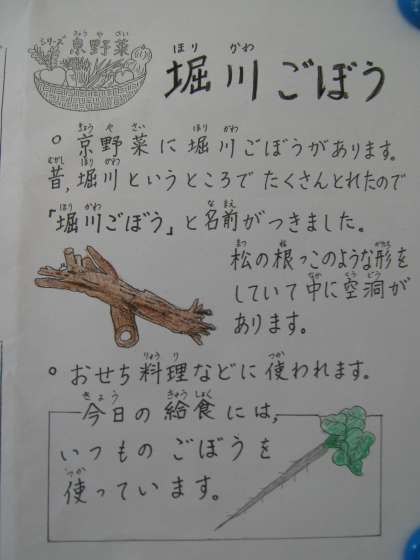 シリーズ 京野菜
堀川ごぼう
○ 京野菜に堀川ごぼうがあります。
昔,堀川というところでたくさんとれたので
「堀川ごぼう」と名前がつきました。
松の根っこのような形を
していて中に空洞が
あります。
○ おせち料理などに使われます。
今日の給食には,
いつものごぼうを
使っています。